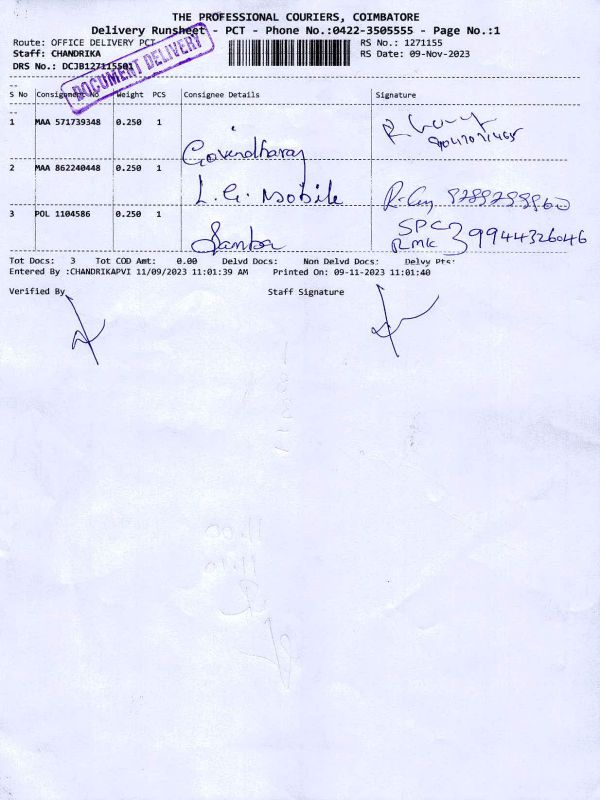 THE PROFESSIONAL COURIERS, COIMBATORE
Delivery Runsheet - PCT - Phone No.:0422-3505555 - Page No.:1
Route: OFFICE DELIVERY PCT RS No.: 1271155
Staff: CHANDRIKA RS Date: 09-Nov-2023
DRS No.: DCJB127115501
DOCUMENT DELIVERY
S No Consignment No Weight PCS Consignee Details Signature
1 MAA 571739348 0.250 1
Govindharaj
2 MAA 862240448 0.250 1
L.G. Mobile
3 POL 1104586 0.250 1 SPC
Samba RMK 9944326046
Tot Docs: 3 Tot COD Amt: 0.00 Delvd Docs: Non Delvd Docs: Delvy Pts:
Entered By :CHANDRIKAPVI 11/09/2023 11:01:39 AM Printed On: 09-11-2023 11:01:40
Verified By Staff Signature